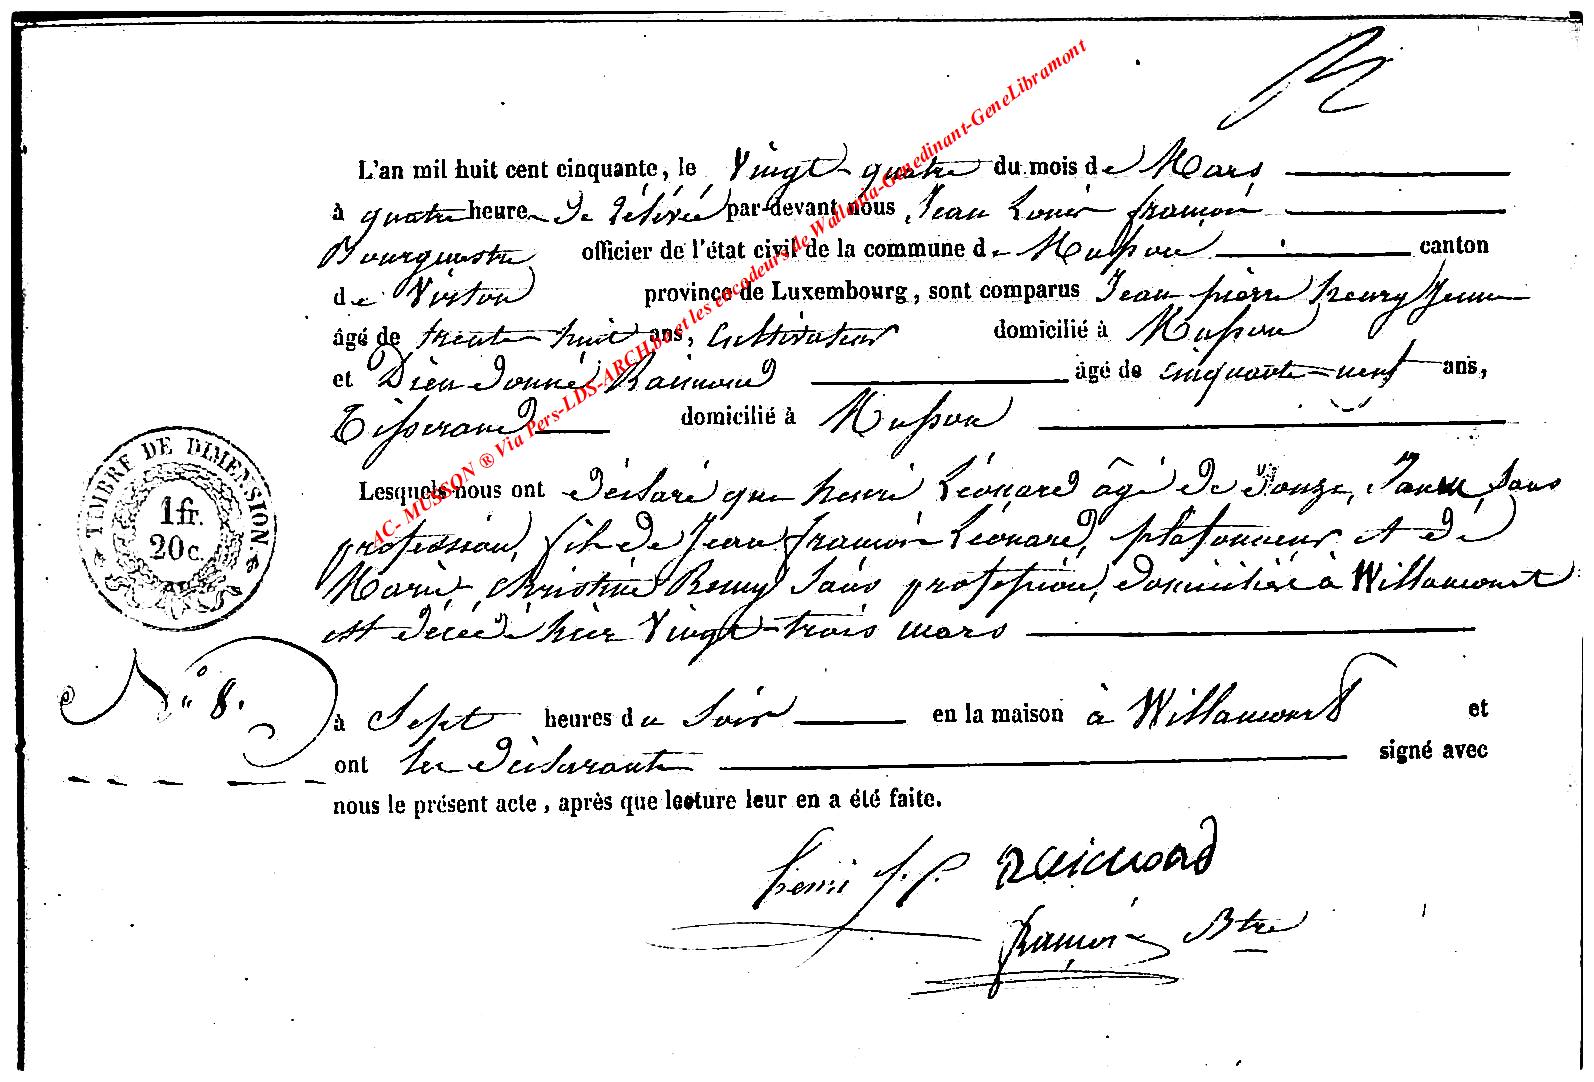 L'an mil huit cent cinquante, le Vingt-quatre du mois de Mars
à quatre heures de relevée par-devant nous Jean Louis françois
Bourguestre officier de l'état civil de la commune de Musson canton
de Virton province de Luxembourg, sont comparus Jean pièrre henry Jeune
âgé de trente huit ans, Cultivateur domicilié à Musson
et Dieu donné Raimond âgé de cinquante-neuf ans,
Tisserand domicilié à Musson
Lesquels nous ont déclaré que henri Léonard âgé de douze, sans
profession, fils de Jean françois Léonard, plafonneur et de
Marie, Christine Remy Sans profession, domiciliés à Willancourt
est décédé hièr Vingt-trois mars
N° 8.
à Sept heures du Soir en la maison à Willancourt et
ont les déclarants signé avec
nous le présent acte, après que lecture leur en a été faite.
henri J. P. Raimond
françois Btre
TIMBRE DE DIMENSION
1fr.
20c.
AC- MUSSON ® Via Pers-LDS-ARCH.be et les encodeurs de Wallonia-Genedinant-GeneLibramont